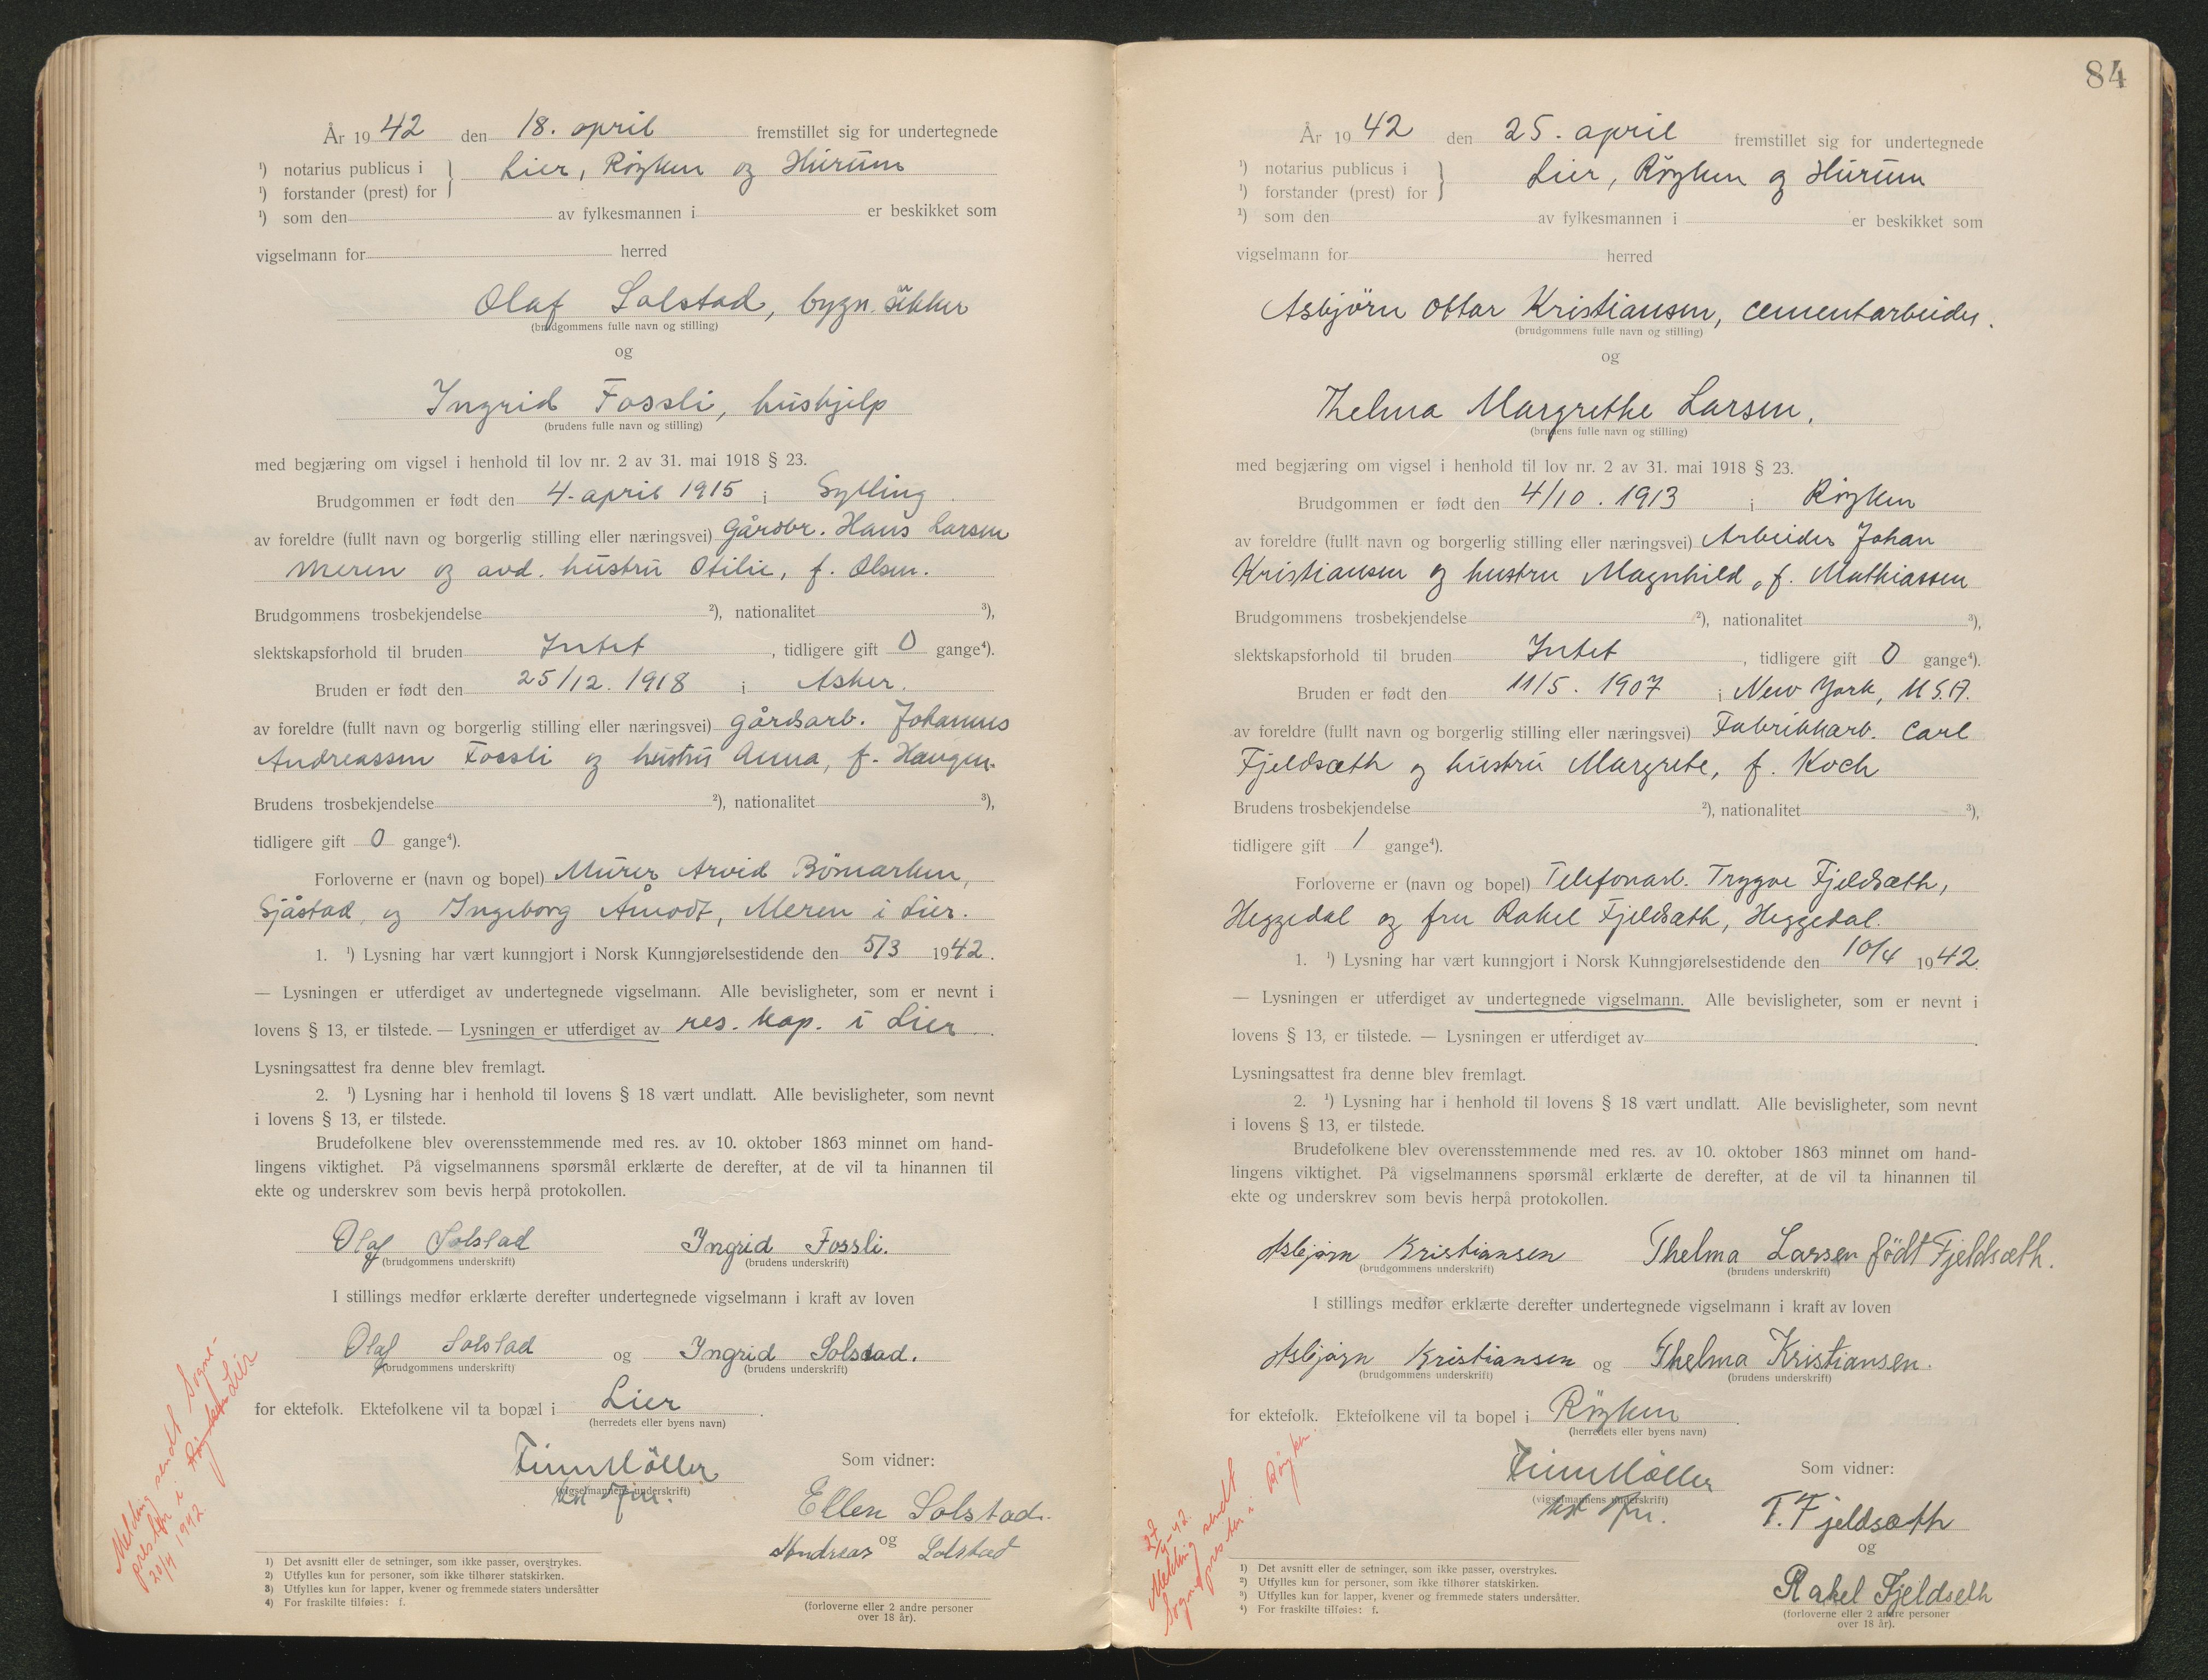 År 1942 den 18. april fremstillet sig for undertegnede
¹) notarius publicus i } Lier, Røyken og Hurum
¹) forstander (prest) for
¹) som den av fylkesmannen i er beskikket som
vigselmann for herred
Olaf Solstad, bygn.
(brudgommens fulle navn og stilling)
og
Ingrid Fossli, hushjelp
(brudens fulle navn og stilling)
med begjæring om vigsel i henhold til lov nr. 2 av 31. mai 1918 § 23.
Brudgommen er født den 4. april 1915 i Sylling
av foreldre (fullt navn og borgerlig stilling eller næringsvei) Gårdbr. Hans Larsen
Meren og avd. hustru Otilie, f. Olsen.
Brudgommens trosbekjendelse ²), nationalitet ³),
slektskapsforhold til bruden Intet, tidligere gift 0 gange⁴).
Bruden er født den 25/12. 1918 i Asker.
av foreldre (fullt navn og borgerlig stilling eller næringsvei) gårdsarb. Johannes
Andreassen Fossli og hustru Anna, f. Haugen.
Brudens trosbekjendelse ²), nationalitet ³),
tidligere gift 0 gange⁴).
Forloverne er (navn og bopel) Murer Arvid Bömarken,
Sjåstad, og Ingeborg Åmodt, Meren i Lier.
1. ¹) Lysning har vært kunngjort i Norsk Kunngjørelsestidende den 5/3 1942.
— Lysningen er utferdiget av undertegnede vigselmann. Alle bevisligheter, som er nevnt i
lovens § 13, er tilstede. — Lysningen er utferdiget av res. kap. i Lier.
Lysningsattest fra denne blev fremlagt.
2. ¹) Lysning har i henhold til lovens § 18 vært undlatt. Alle bevisligheter, som nevnt
i lovens § 13, er tilstede.
Brudefolkene blev overensstemmende med res. av 10. oktober 1863 minnet om hand-
lingens viktighet. På vigselmannens spørsmål erklærte de derefter, at de vil ta hinannen til
ekte og underskrev som bevis herpå protokollen.
Olaf Solstad Ingrid Fossli.
(brudgommens underskrift) (brudens underskrift)
I stillings medfør erklærte derefter undertegnede vigselmann i kraft av loven
Olaf Solstad og Ingrid Solstad.
(brudgommens underskrift) (brudens underskrift)
for ektefolk. Ektefolkene vil ta bopæl i Lier.
(herredets eller byens navn)
Finn Möller Som vidner:
(vigselmannens underskrift)
Ellen Solstad.
og
Andreas Solstad
(forloverne eller 2 andre personer
over 18 år).
Melding sendt Sogne-
presten i Røyken Lier
20/4 1942.
1) Det avsnitt eller de setninger, som ikke passer, overstrykes.
2) Utfylles kun for personer, som ikke tilhører statskirken.
3) Utfylles kun for lapper, kvener og fremmede staters undersåtter
4) For fraskilte tilføies: f.
84
År 1942 den 25. april fremstillet sig for undertegnede
¹) notarius publicus i } Lier, Røyken og Hurum
¹) forstander (prest) for
¹) som den av fylkesmannen i er beskikket som
vigselmann for herred
Asbjörn Ottar Kristiansen, cementarbeider.
(brudgommens fulle navn og stilling)
og
Thelma Margrethe Larsen.
(brudens fulle navn og stilling)
med begjæring om vigsel i henhold til lov nr. 2 av 31. mai 1918 § 23.
Brudgommen er født den 4/10. 1913 i Røyken
av foreldre (fullt navn og borgerlig stilling eller næringsvei) Arbeider Johan
Kristiansen og hustru Magnhild, f. Mathiassen
Brudgommens trosbekjendelse ²), nationalitet ³),
slektskapsforhold til bruden Intet, tidligere gift 0 gange⁴).
Bruden er født den 11/5. 1907 i New York, U.S.A.
av foreldre (fullt navn og borgerlig stilling eller næringsvei) Fabrikkarb. Carl
Fjeldsæth og hustru Margrete, f. Koch
Brudens trosbekjendelse ²), nationalitet ³),
tidligere gift 1 gange⁴).
Forloverne er (navn og bopel) Telefonarb. Trygve Fjeldsæth,
Heggedal og fru Rakel Fjeldsæth, Heggedal.
1. ¹) Lysning har vært kunngjort i Norsk Kunngjørelsestidende den 10/4 1942.
— Lysningen er utferdiget av undertegnede vigselmann. Alle bevisligheter, som er nevnt i
lovens § 13, er tilstede. — Lysningen er utferdiget av .
Lysningsattest fra denne blev fremlagt.
2. ¹) Lysning har i henhold til lovens § 18 vært undlatt. Alle bevisligheter, som nevnt
i lovens § 13, er tilstede.
Brudefolkene blev overensstemmende med res. av 10. oktober 1863 minnet om hand-
lingens viktighet. På vigselmannens spørsmål erklærte de derefter, at de vil ta hinannen til
ekte og underskrev som bevis herpå protokollen.
Asbjørn Kristiansen Thelma Larsen født Fjeldsæth.
(brudgommens underskrift) (brudens underskrift)
I stillings medfør erklærte derefter undertegnede vigselmann i kraft av loven
Asbjørn Kristiansen og Thelma Kristiansen.
(brudgommens underskrift) (brudens underskrift)
for ektefolk. Ektefolkene vil ta bopel i Röyken.
(herredets eller byens navn)
Finn Möller Som vidner:
(vigselmannens underskrift)
T. Fjeldsæth
og
Rakel Fjeldseth
(forloverne eller 2 andre personer
over 18 år).
27/4-42.
Melding sendt
Sognepresten i Røyken.
¹) Det avsnitt eller de setninger, som ikke passer, overstrykes.
²) Utfylles kun for personer, som ikke tilhører statskirken.
³) Utfylles kun for lapper, kvener og fremmede staters undersåtter.
⁴) For fraskilte tilføies: f.